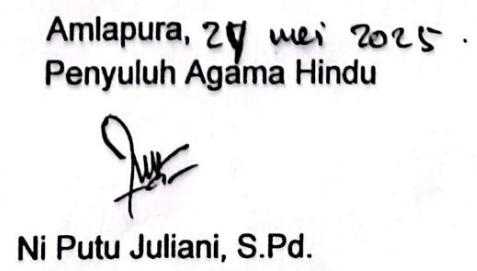 Amlapura, mei 2025.
Penyuluh Agama Hindu
Ni Putu Juliani, S.Pd.